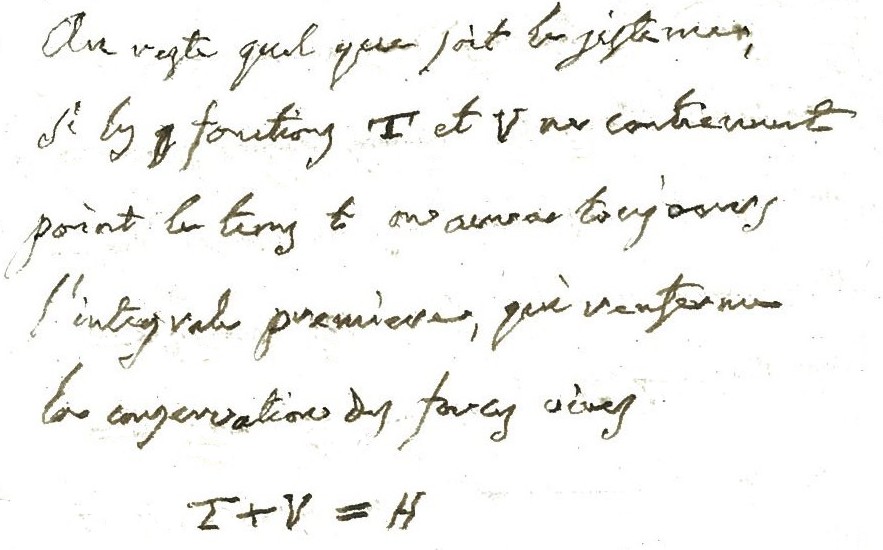 Au reste quel que soit le sisteme,
si les fonctions T et V ne contiennent
point le tems t on aura toujours
l'integrale premiere, qui renferme
la conservation des forces vives
T + V = H